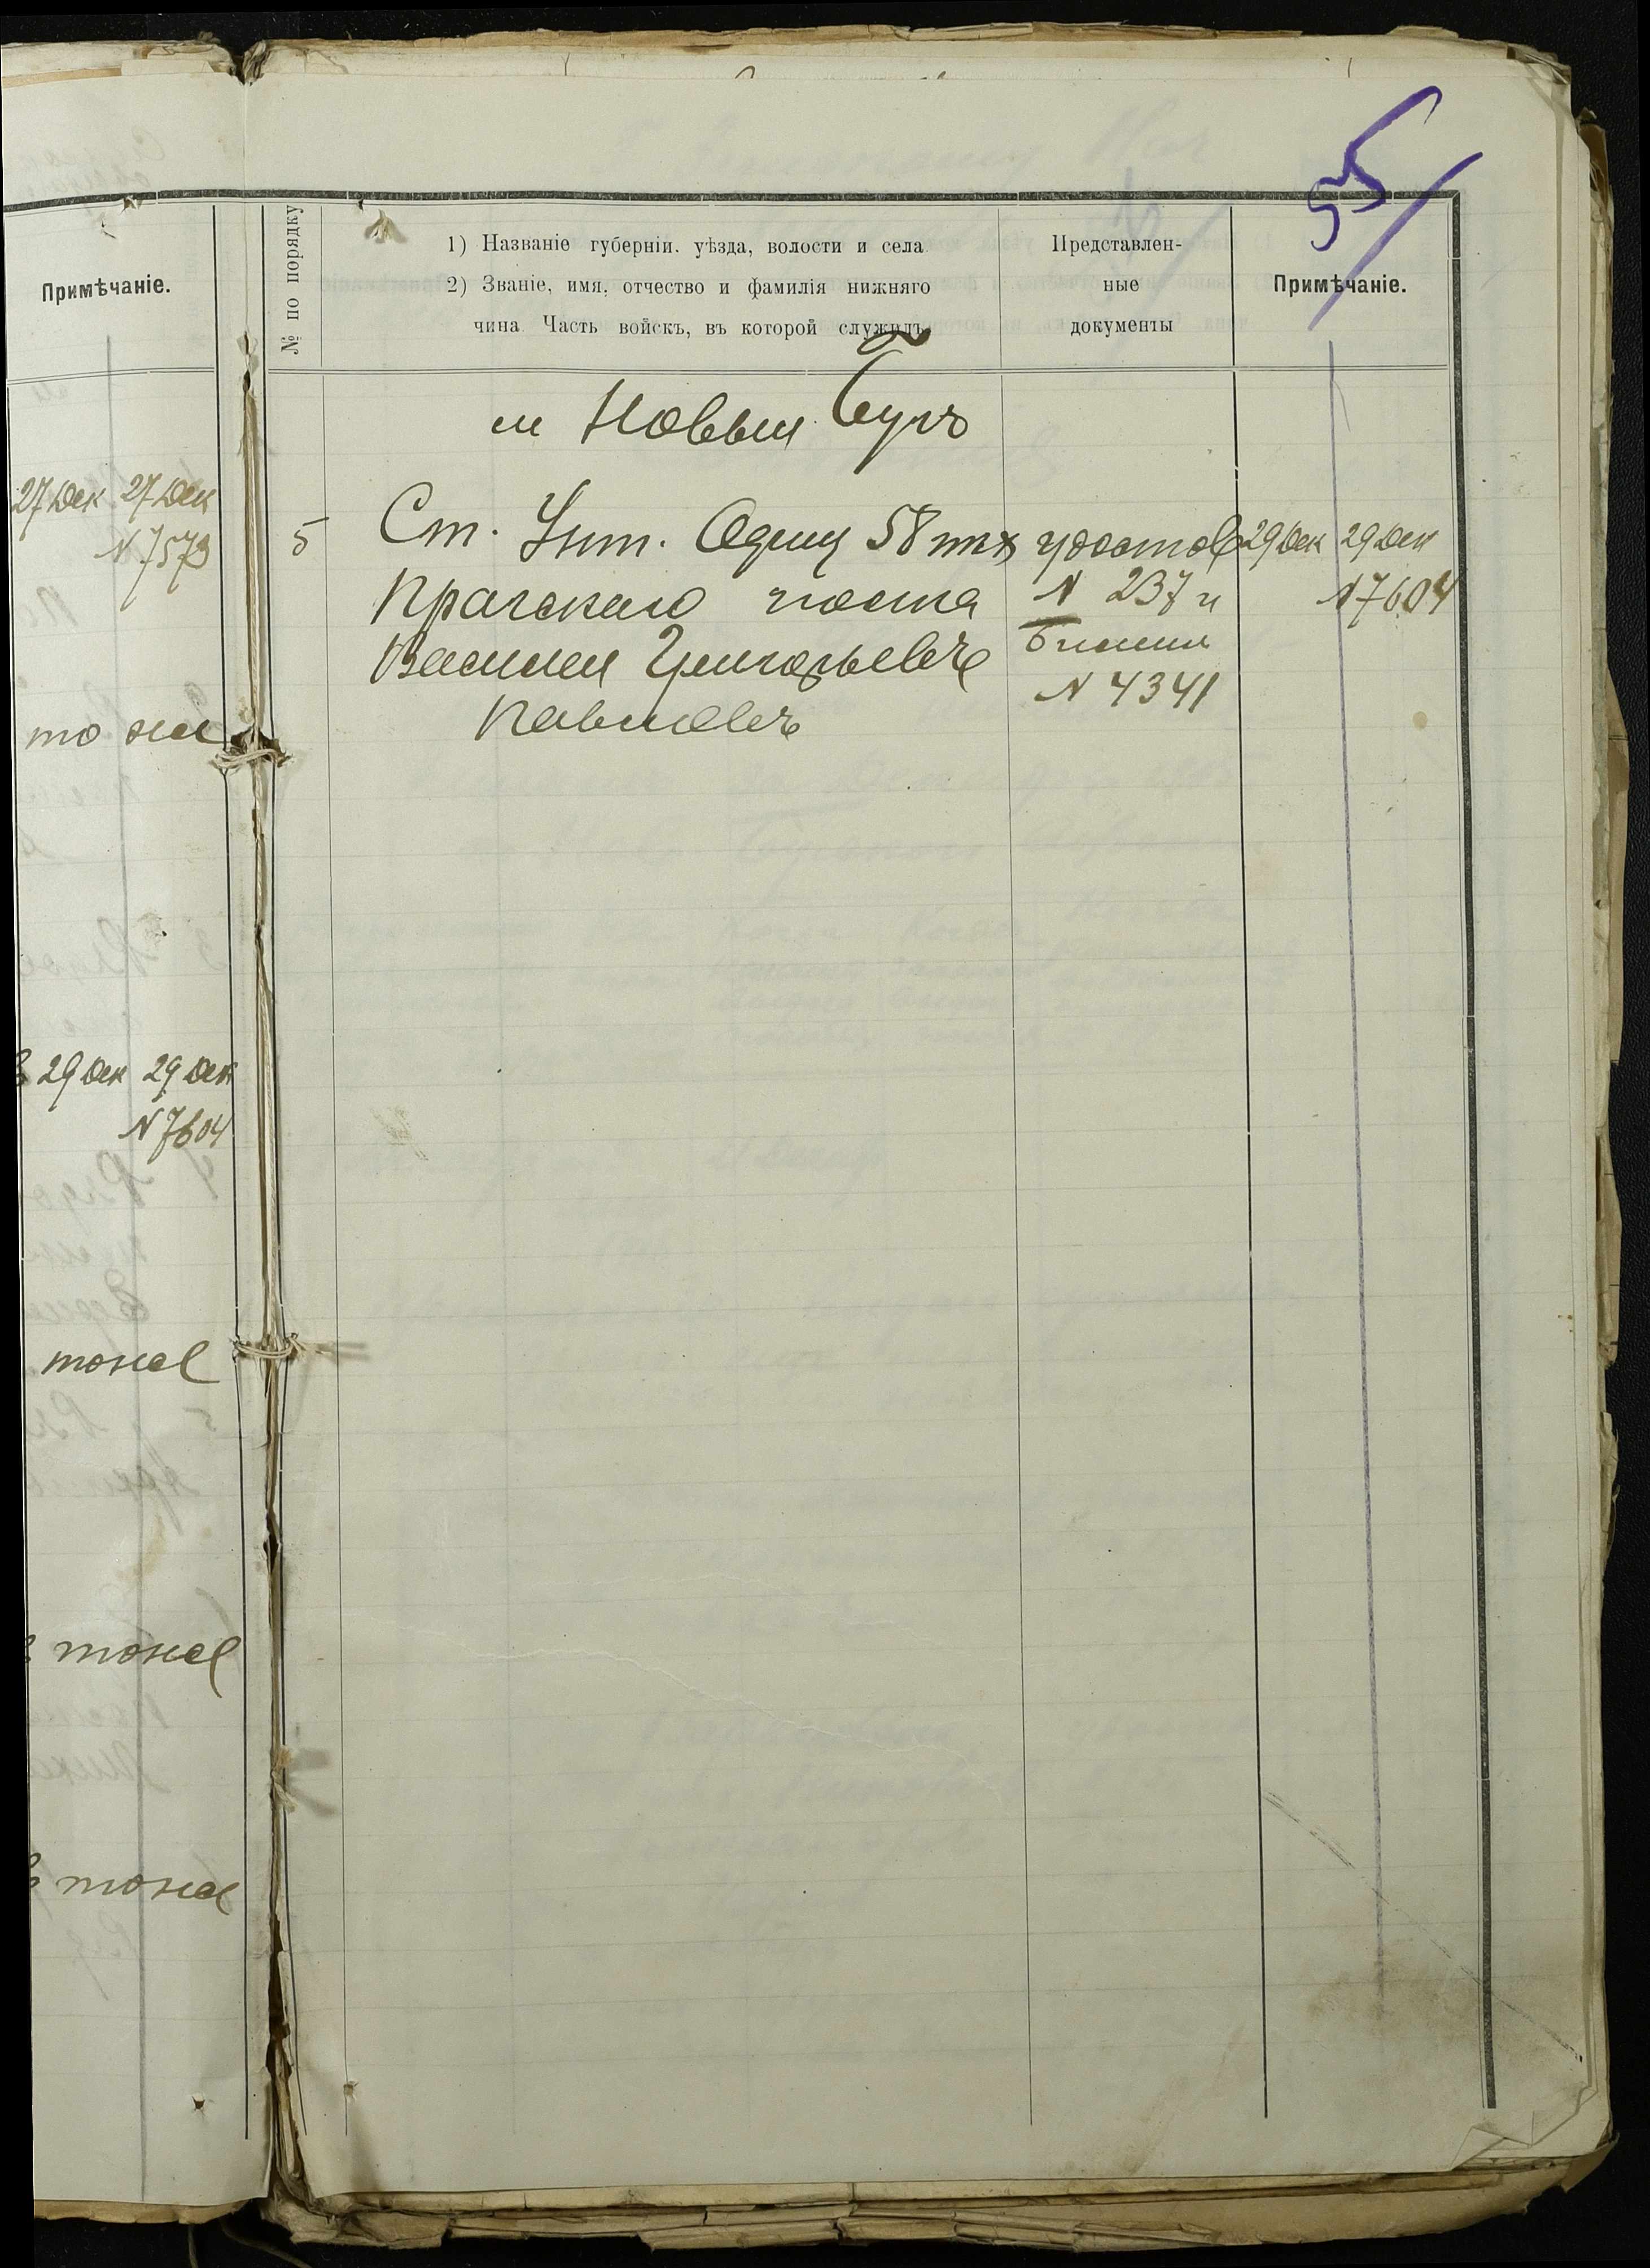 Примѣчаніе.
27 Дек 27 Дек
N 7573
то же
29 Дек 29 Дек
N 7604
тоже
тоже
тоже
95
№ по порядку
1) Названіе губерніи. уѣзда, волости и села
2) Званіе, имя, отчество и фамилія нижняго
чина Часть войскъ, въ которой служилъ
Представлен-
ные
документы
Примѣчаніе.
м Новый Бугъ
5 Ст. Унт. Офиц 58 пѣх удостов 29 Дек 29 Дек
Прагскаго полка N 237 и N 7604
Василий Григорьевъ билет
N 4341
Павловъ